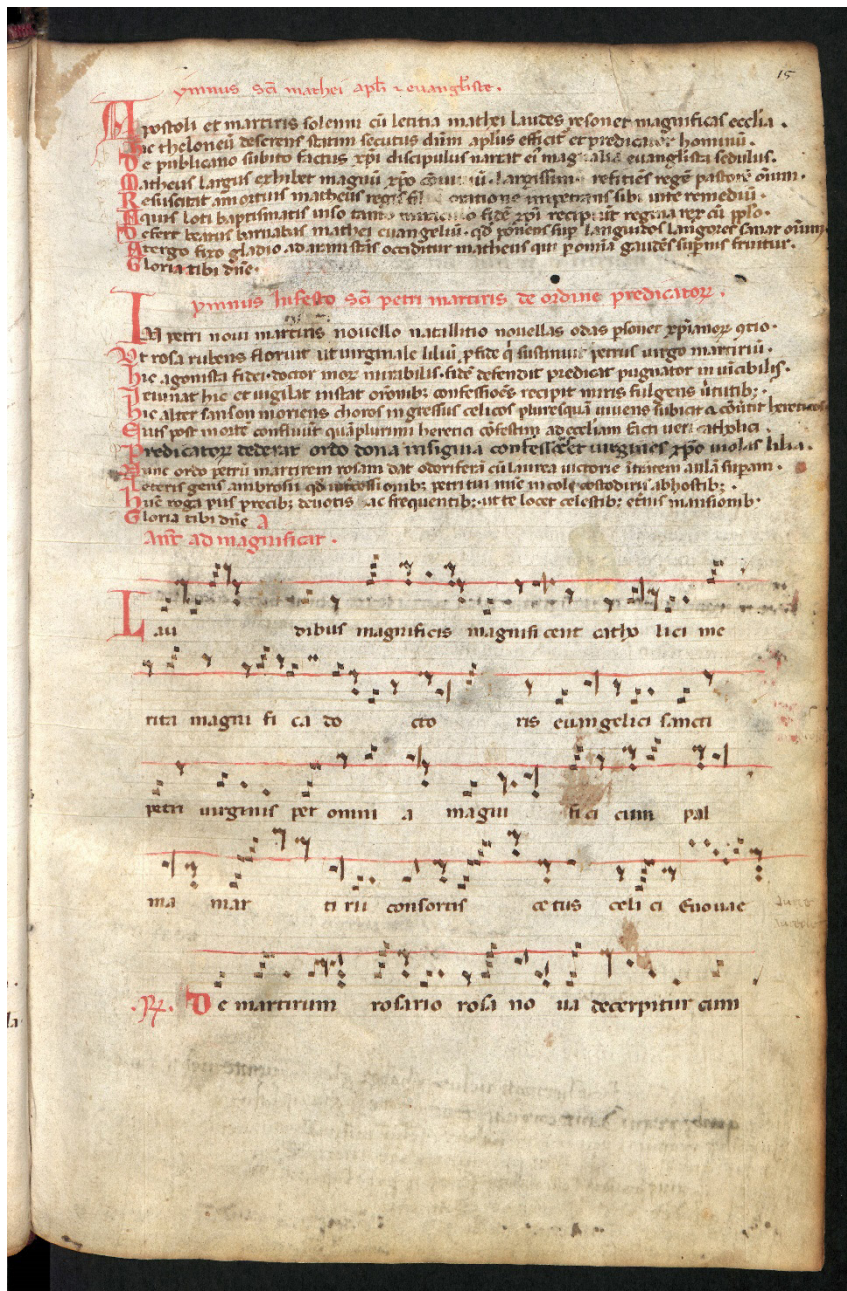 15
ymnus Sc̄i mathei apl̄i ⁊ euangl̄iste.
Apostoli et martiris solenni cū letitia mathei laudes resonet magnificas eccl̄ia.
hic theloneū deserens statim secutus dn̄m apl̄us efficit̄ et predicator hominū.
De publicano subito factus xp̄i discipulus narrat ei magnalia euanglista sedulus.
Matheus largus exhibet magnū xp̄o largissim reficiēs regē pastorē om̄ium.
Resuscitat a mortuis matheus regis oratione impetrans sibi uite remediū.
Aquis loti baptismatis uiso tanto miraculo fidē xp̄i recipiūt regina rex cū pp̄lo.
Defert beatus barnabas mathei euangeliū. qd ponens sup languidos langores sanat om̄ium.
Atergo fixo gladio ad aram stās occiditur matheus qui p om̄ia gaudēs sup̄nis fruitur.
Gloria tibi dn̄e.
ymnus In festo Sc̄i petri martiris de ordine predicatoꝝ.
IN petri noui martiris nouello natillitio nouellas odas p̄sonet xp̄ianoꝝ ꝯtio.
Vt rosa rubens floruit ut uirginale liliū p fide q̄ sustinuit petrus uirgo martiriū.
hic agonista fidei. doctor moꝝ mirabilis. fidē defendit predicat pugnator inuīcibilis.
Ieiunat hic et uigilat instat or̄onibꝫ confessiōes recipit miris fulgens ūtutibꝫ.
hic alter sanson moriens choros ingressus celicos plures quā uiuens subicit ⁊ cōūtit hereticos.
Euis post mortē confluūt quāplurimi heretici cōfestim ad eccl̄iam fc̄i ueri catholici.
Predicatoꝝ dederat ordo dona insignia confessōes et uirgines xp̄o uiolas lilia.
Nunc ordo petrū martirem rosam dat odoriferā cū laurea uictorie ītrātem aulā sup̄am.
Leteris gens ambrosii qd petri tui nūc incole costodiris ab hostibꝫ.
hūc roga pius precibꝫ deuotis ac frequentibꝫ. ut te locet celestibꝫ et̄nis mansionibꝫ.
Gloria tibi dn̄e A
Ant̄ ad magnificat.
Lau dibus magnificis magnificent catho lici me
rita magni fi ca do cto ris euangelici sancti
petri uirginis per omni a magni fi ci cum pal
ma mar ti rii consortis ce tus celi ci Euouae
.℟. De martirum rosario rosa no ua decerpitur cum